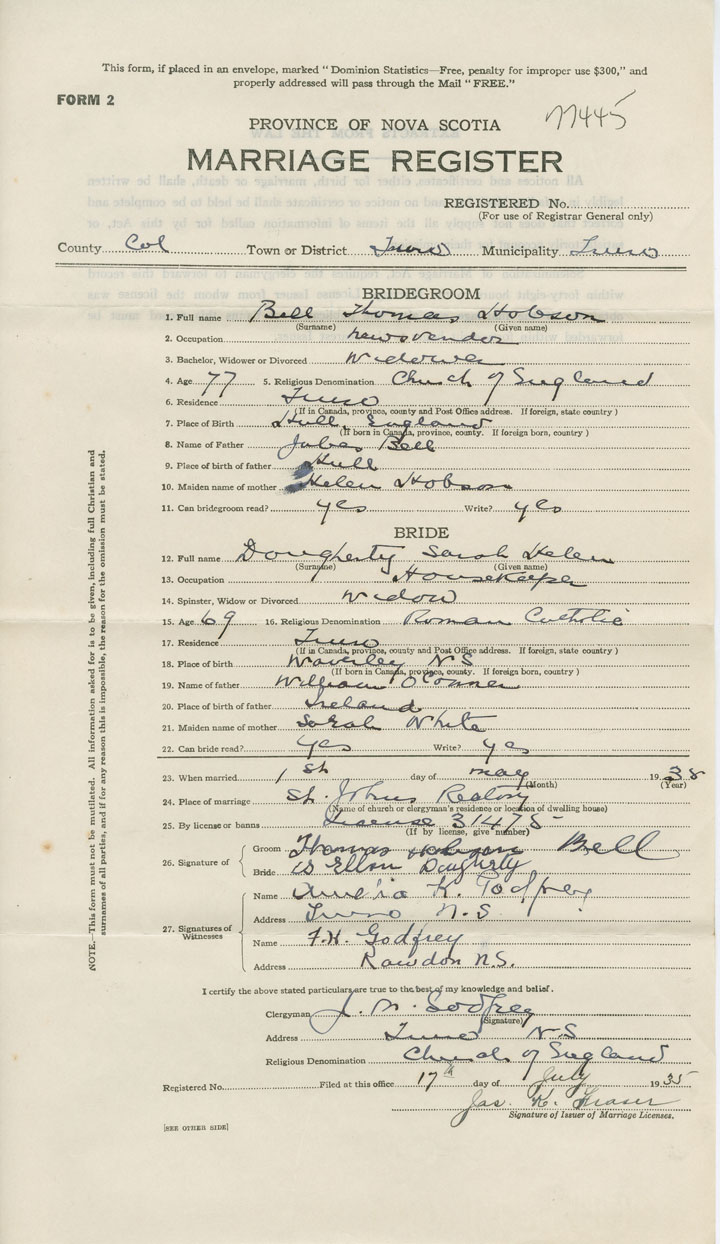 This form, if placed in an envelope, marked "Dominion Statistics—Free, penalty for improper use $300," and
properly addressed will pass through the Mail "FREE."
FORM 2
77445
PROVINCE OF NOVA SCOTIA
MARRIAGE REGISTER
REGISTERED No.
(For use of Registrar General only)
County Col Town or District Truro Municipality Truro
BRIDEGROOM
1. Full name Bell Thomas Hobson
(Surname) (Given name)
2. Occupation newsvendor
3. Bachelor, Widower or Divorced Widower
4. Age 77 5. Religious Denomination Church of England
6. Residence Truro
(If in Canada, province, county and Post Office address. If foreign, state country)
7. Place of Birth Hull, England
(If born in Canada, province, county. If foreign born, country)
8. Name of Father Bell
9. Place of birth of father Hull
10. Maiden name of mother Helen Hobson
11. Can bridegroom read? yes Write? yes
BRIDE
12. Full name Dougherty Sarah Helen
(Surname) (Given name)
13. Occupation Housekeeper
14. Spinster, Widow or Divorced Widow
15. Age 69 16. Religious Denomination Roman Catholic
17. Residence Truro
(If in Canada, province, county and Post Office address. If foreign, state country)
18. Place of birth Waverley N S
(If born in Canada, province, county. If foreign born, country)
19. Name of father William O'Conner
20. Place of birth of father Ireland
21. Maiden name of mother Sarah White
22. Can bride read? Yes Write? yes
23. When married 1st day of may 1935
(Month) (Year)
24. Place of marriage St. Johns Rectory
(Name of church or clergyman's residence or location of dwelling house)
25. By license or banns License 31475
(If by license, give number)
26. Signature of Groom Thomas Hobson Bell
Bride Ellen Daugherty
27. Signatures of Witnesses
Name K. Godfrey
Address Truro N.S
Name F.H. Godfrey
Address Rawdon N.S.
I certify the above stated particulars are true to the best of my knowledge and belief.
Clergyman J. M. Godfrey
(Signature)
Address Truro N.S
Religious Denomination Church of England
Registered No. Filed at this office 17th day of July 1935
Jas. K. Fraser
Signature of Issuer of Marriage Licenses.
[SEE OTHER SIDE]
NOTE.—This form must not be mutilated. All information asked for is to be given, including full Christian and
surnames of all parties, and if for any reason this is impossible, the reason for the omission must be stated.